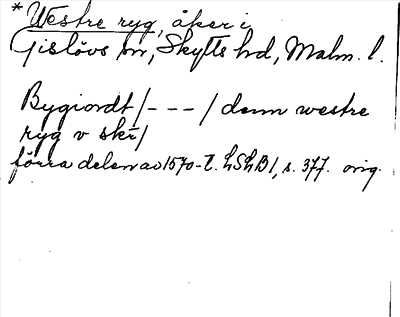 * Westre ryg, åker i
Gislövs sn, Skytts hd, Malm. l.
Bygiordt /- - - / denn westre
ryg v skr /
förra delen av 1570-t. LSLB1, s. 377. orig.